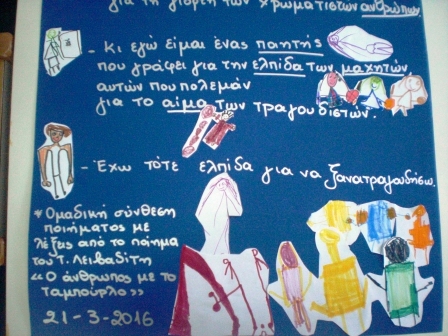 για τη γιορτή των χρωματιστών ανθρώπων.
- Κι εγώ είμαι ένας ποιητής
που γράφει για την ελπίδα των μαχητών
αυτών που πολεμάν
για το αίμα των τραγουδιστών.
- Έχω τότε ελπίδα για να ξανατραγουδήσω.
* Ομαδική σύνθεση
ποιήματος με
λέξεις από το ποίημα
του Τ. Λειβαδίτη
«Ο άνθρωπος με το
ταμπούρλο»
21-3-2016